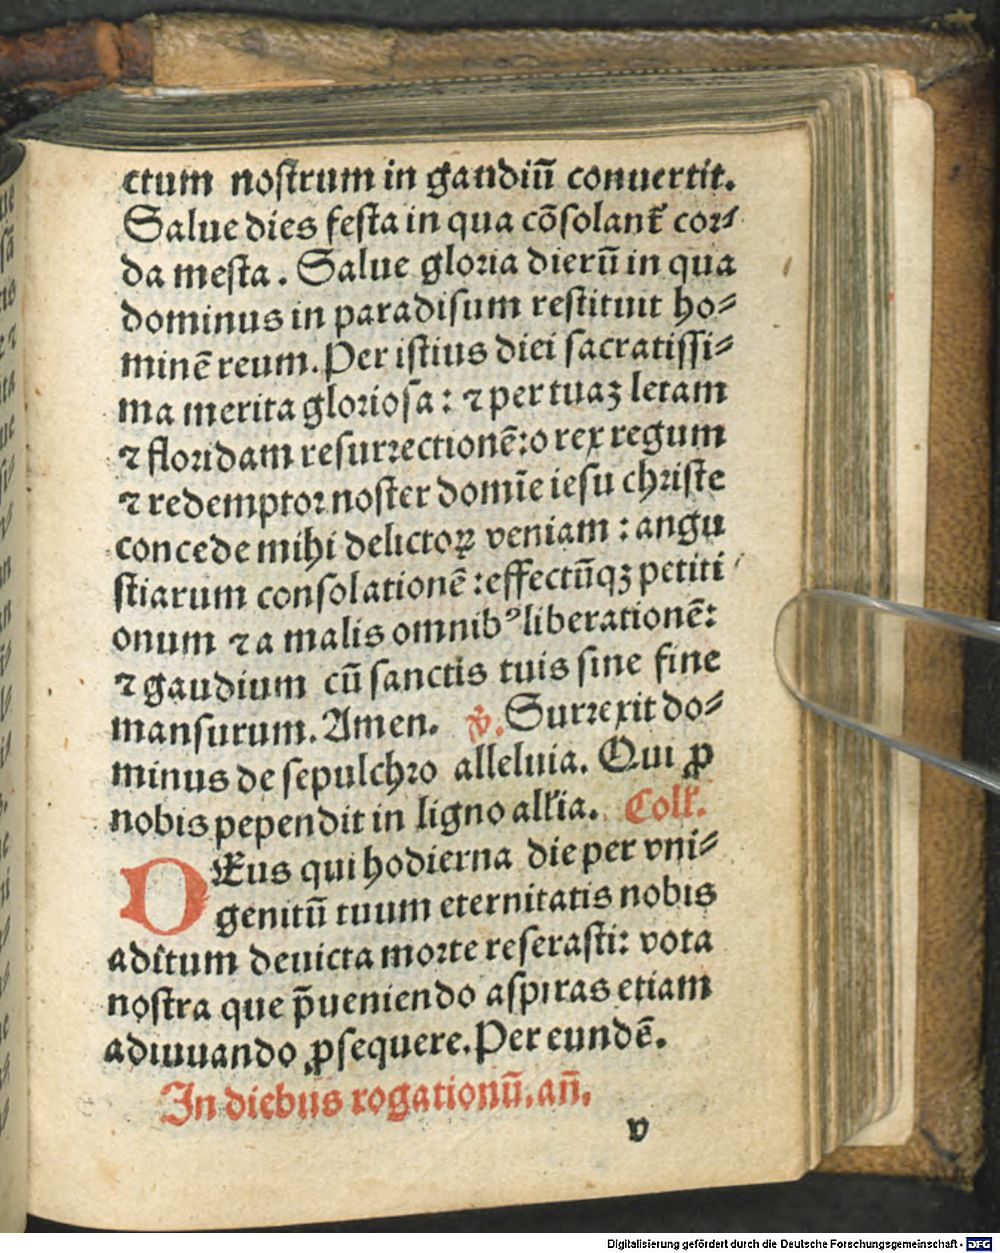 ctum nostrum in gaudiū conuertit.
Salue dies festa in qua cōsolant᷑ cor⸗
da mesta. Salue gloria dierū in qua
dominus in paradisum restituit ho⸗
minē reum. Per istius diei sacratissi⸗
ma merita gloriosa: ⁊ per tuaꝫ letam
⁊ floridam resurrectionē: o rex regum
⁊ redemptor noster domīe iesu christe
concede mihi delictoꝝ veniam: angu
stiarum consolationē: effectūqꝫ petiti
onum ⁊ a malis omnibꝰ liberationē:
⁊ gaudium cū sanctis tuis sine fine
mansurum. Amen. ℣. Surrexit do⸗
minus de sepulchro alleluia. Qui ꝓ
nobis pependit in ligno all'ia. Coll'.
DEus qui hodierna die per vni⸗
genitū tuum eternitatis nobis
aditum deuicta morte reserasti: vota
nostra que p̄ueniendo aspiras etiam
adiuuando ꝓsequere. Per eundē.
In diebus rogationū. an̄.
v
Digitalisierung gefördert durch die Deutsche Forschungsgemeinschaft - DFG